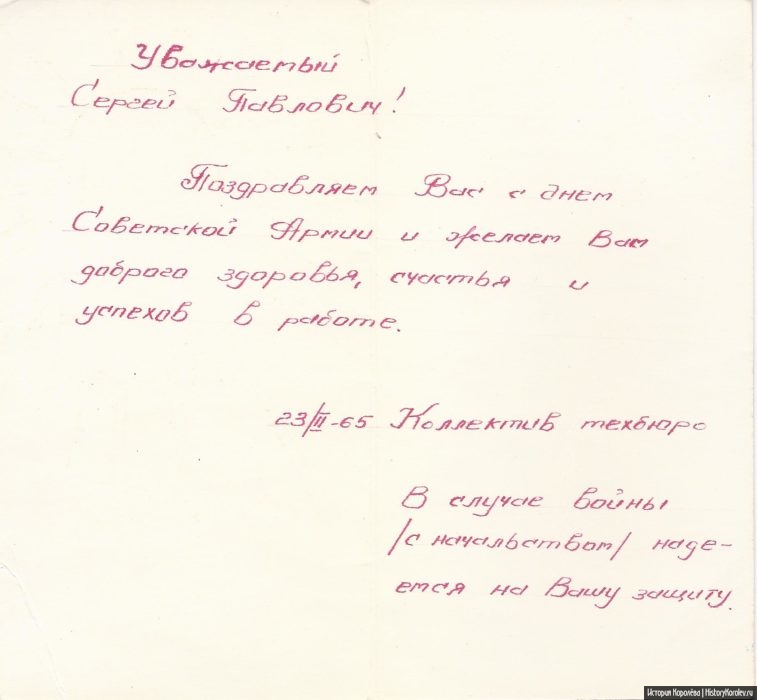 Уважаемый
Сергей Павлович!
Поздравляем Вас с днем
Советской Армии и желаем Вам
доброго здоровья, счастья и
успехов в работе.
23/II-65 Коллектив техбюро
В случае войны
/с начальством/ наде-
ется на Вашу защиту.
История Королёва | HistoryKorolev.ru